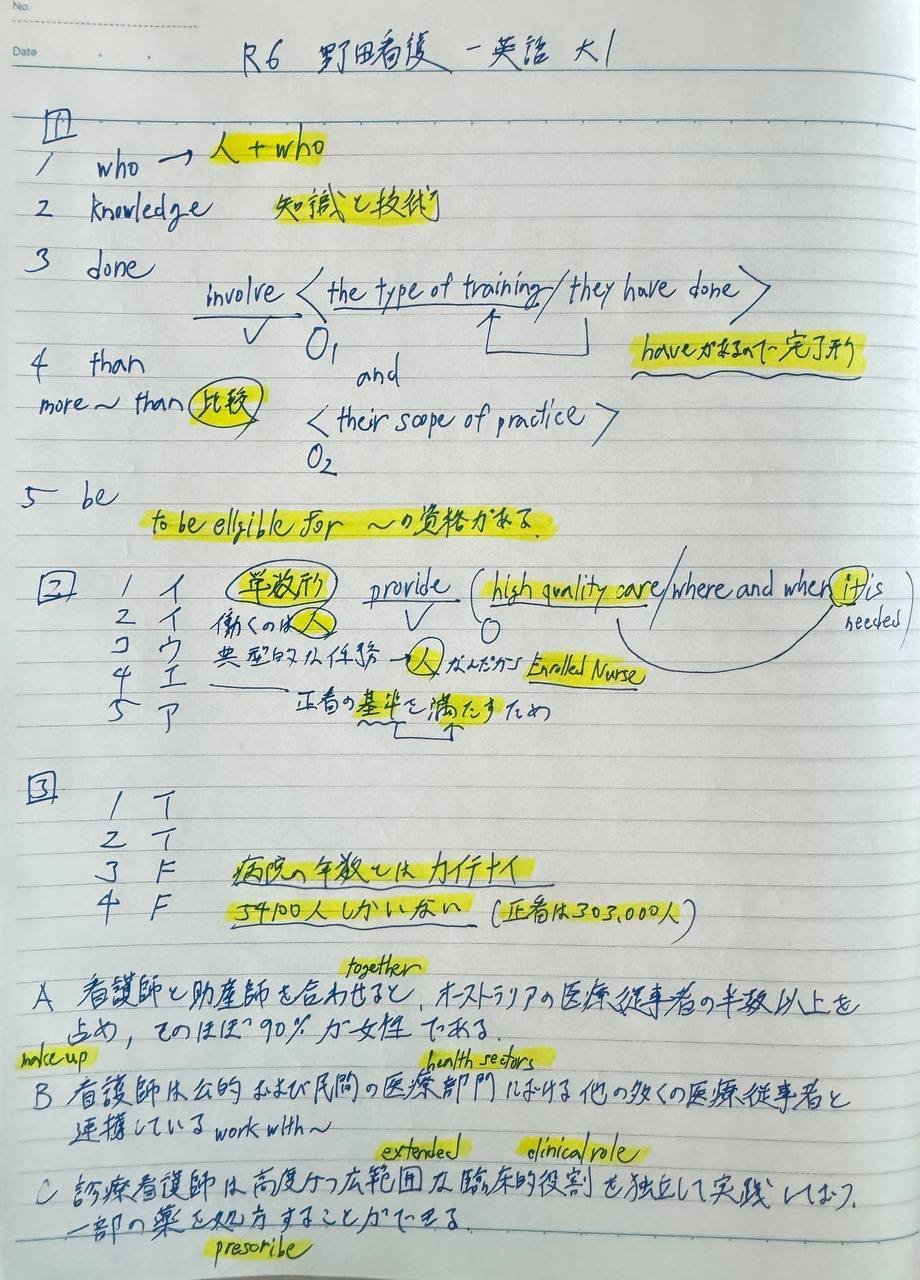 No.
Date
R6 野田看護 一英語 大1
1
1 who → 人 + who
2 knowledge 知識と技術
3 done
involve <the type of training/they have done>
V O1
haveがあるので完了形
4 than
and
more ~ than 比較
<their scope of practice>
O2
5 be
to be ellgible for ~の資格がある.
2 1 イ 単数形 provide (high quality care/where and when it is needed)
2 イ 働くのは人 V O
3 ウ 典型的な任務 → 人なんだから Enrolled Nurse
4 エ
5 ア 正看の基準を満たすため
3
1 T
2 T
3 F 病院の年数とは カイテナイ
4 F 5400人しかいない (正看は303,000人)
together
A 看護師と助産師を合わせると, オーストラリアの医療従事者の半数以上を
占め, そのほぼ90%が女性である.
make up health sectors
B 看護師は公的および民間の医療部門における他の多くの医療従事者と
連携している work with~
extended clinical role
C 診療看護師は高度かつ広範囲な臨床的役割を独立して実践しており,
一部の薬を処方することができる.
presoribe